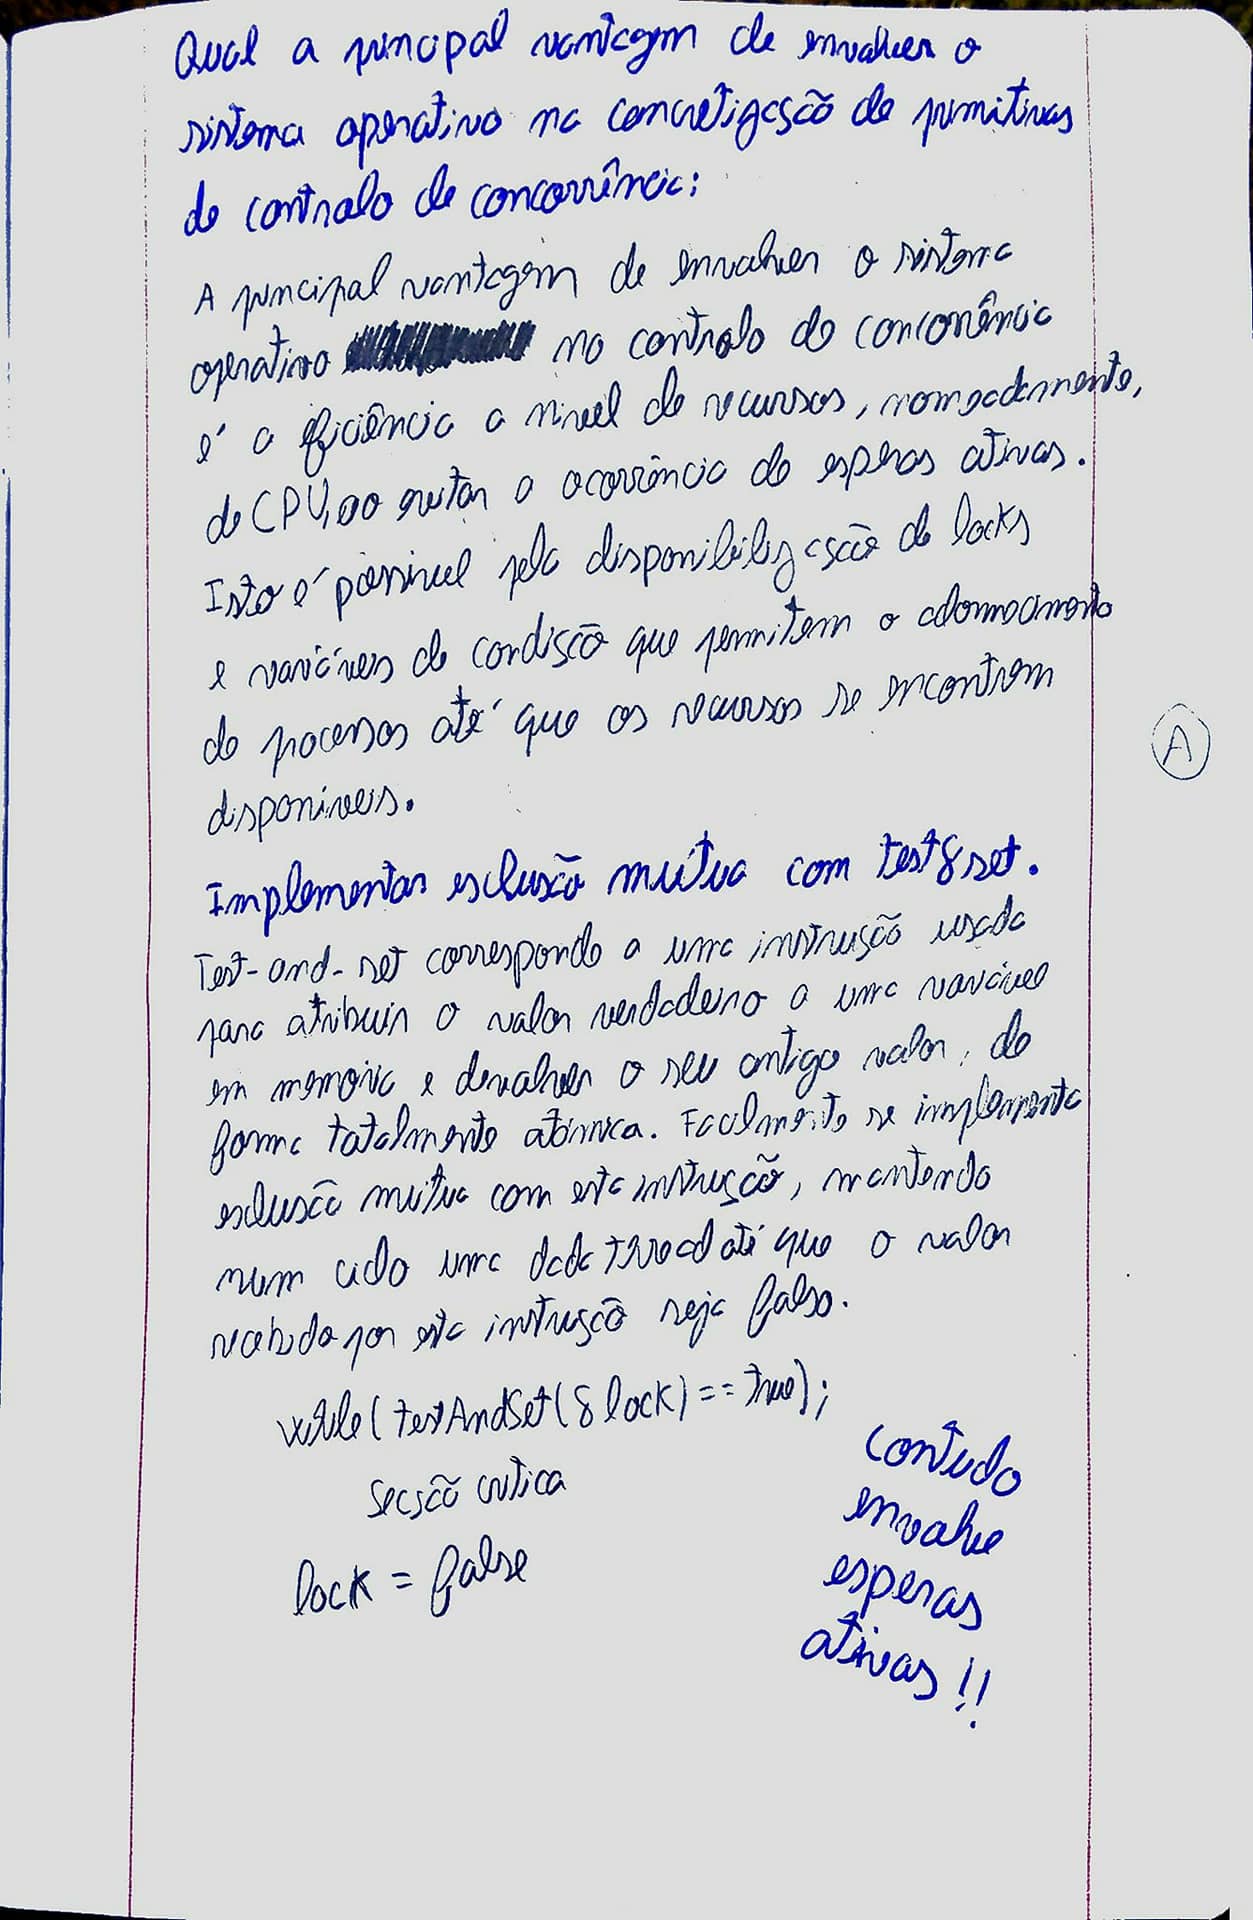 Qual a principal vantagem de envolver o
sistema operativo na concretização de primitivas
de controlo de concorrência:
A principal vantagem de envolver o sistema
operativo no controlo de concorrência
é a eficiência a nível de recursos, nomeadamente,
de CPU, ao evitar a ocorrência de esperas ativas.
Isto é possível pela disponibilização de locks
e variáveis de condição que permitem o adormecimento
de processos até que os recursos se encontrem
disponíveis.
A
Implementar exclusão mútua com test&set.
Test-and-set corresponde a uma instrução usada
para atribuir o valor verdadeiro a uma variável
em memória e devolver o seu antigo valor, de
forma totalmente atómica. Facilmente se implementa
exclusão mútua com esta instrução, mantendo
num ciclo uma dada thread até que o valor
recebido por esta instrução seja falso.
while(testAndSet(&lock)==true);
Secção critica
lock = false
Contudo
envolve
esperas
ativas!!